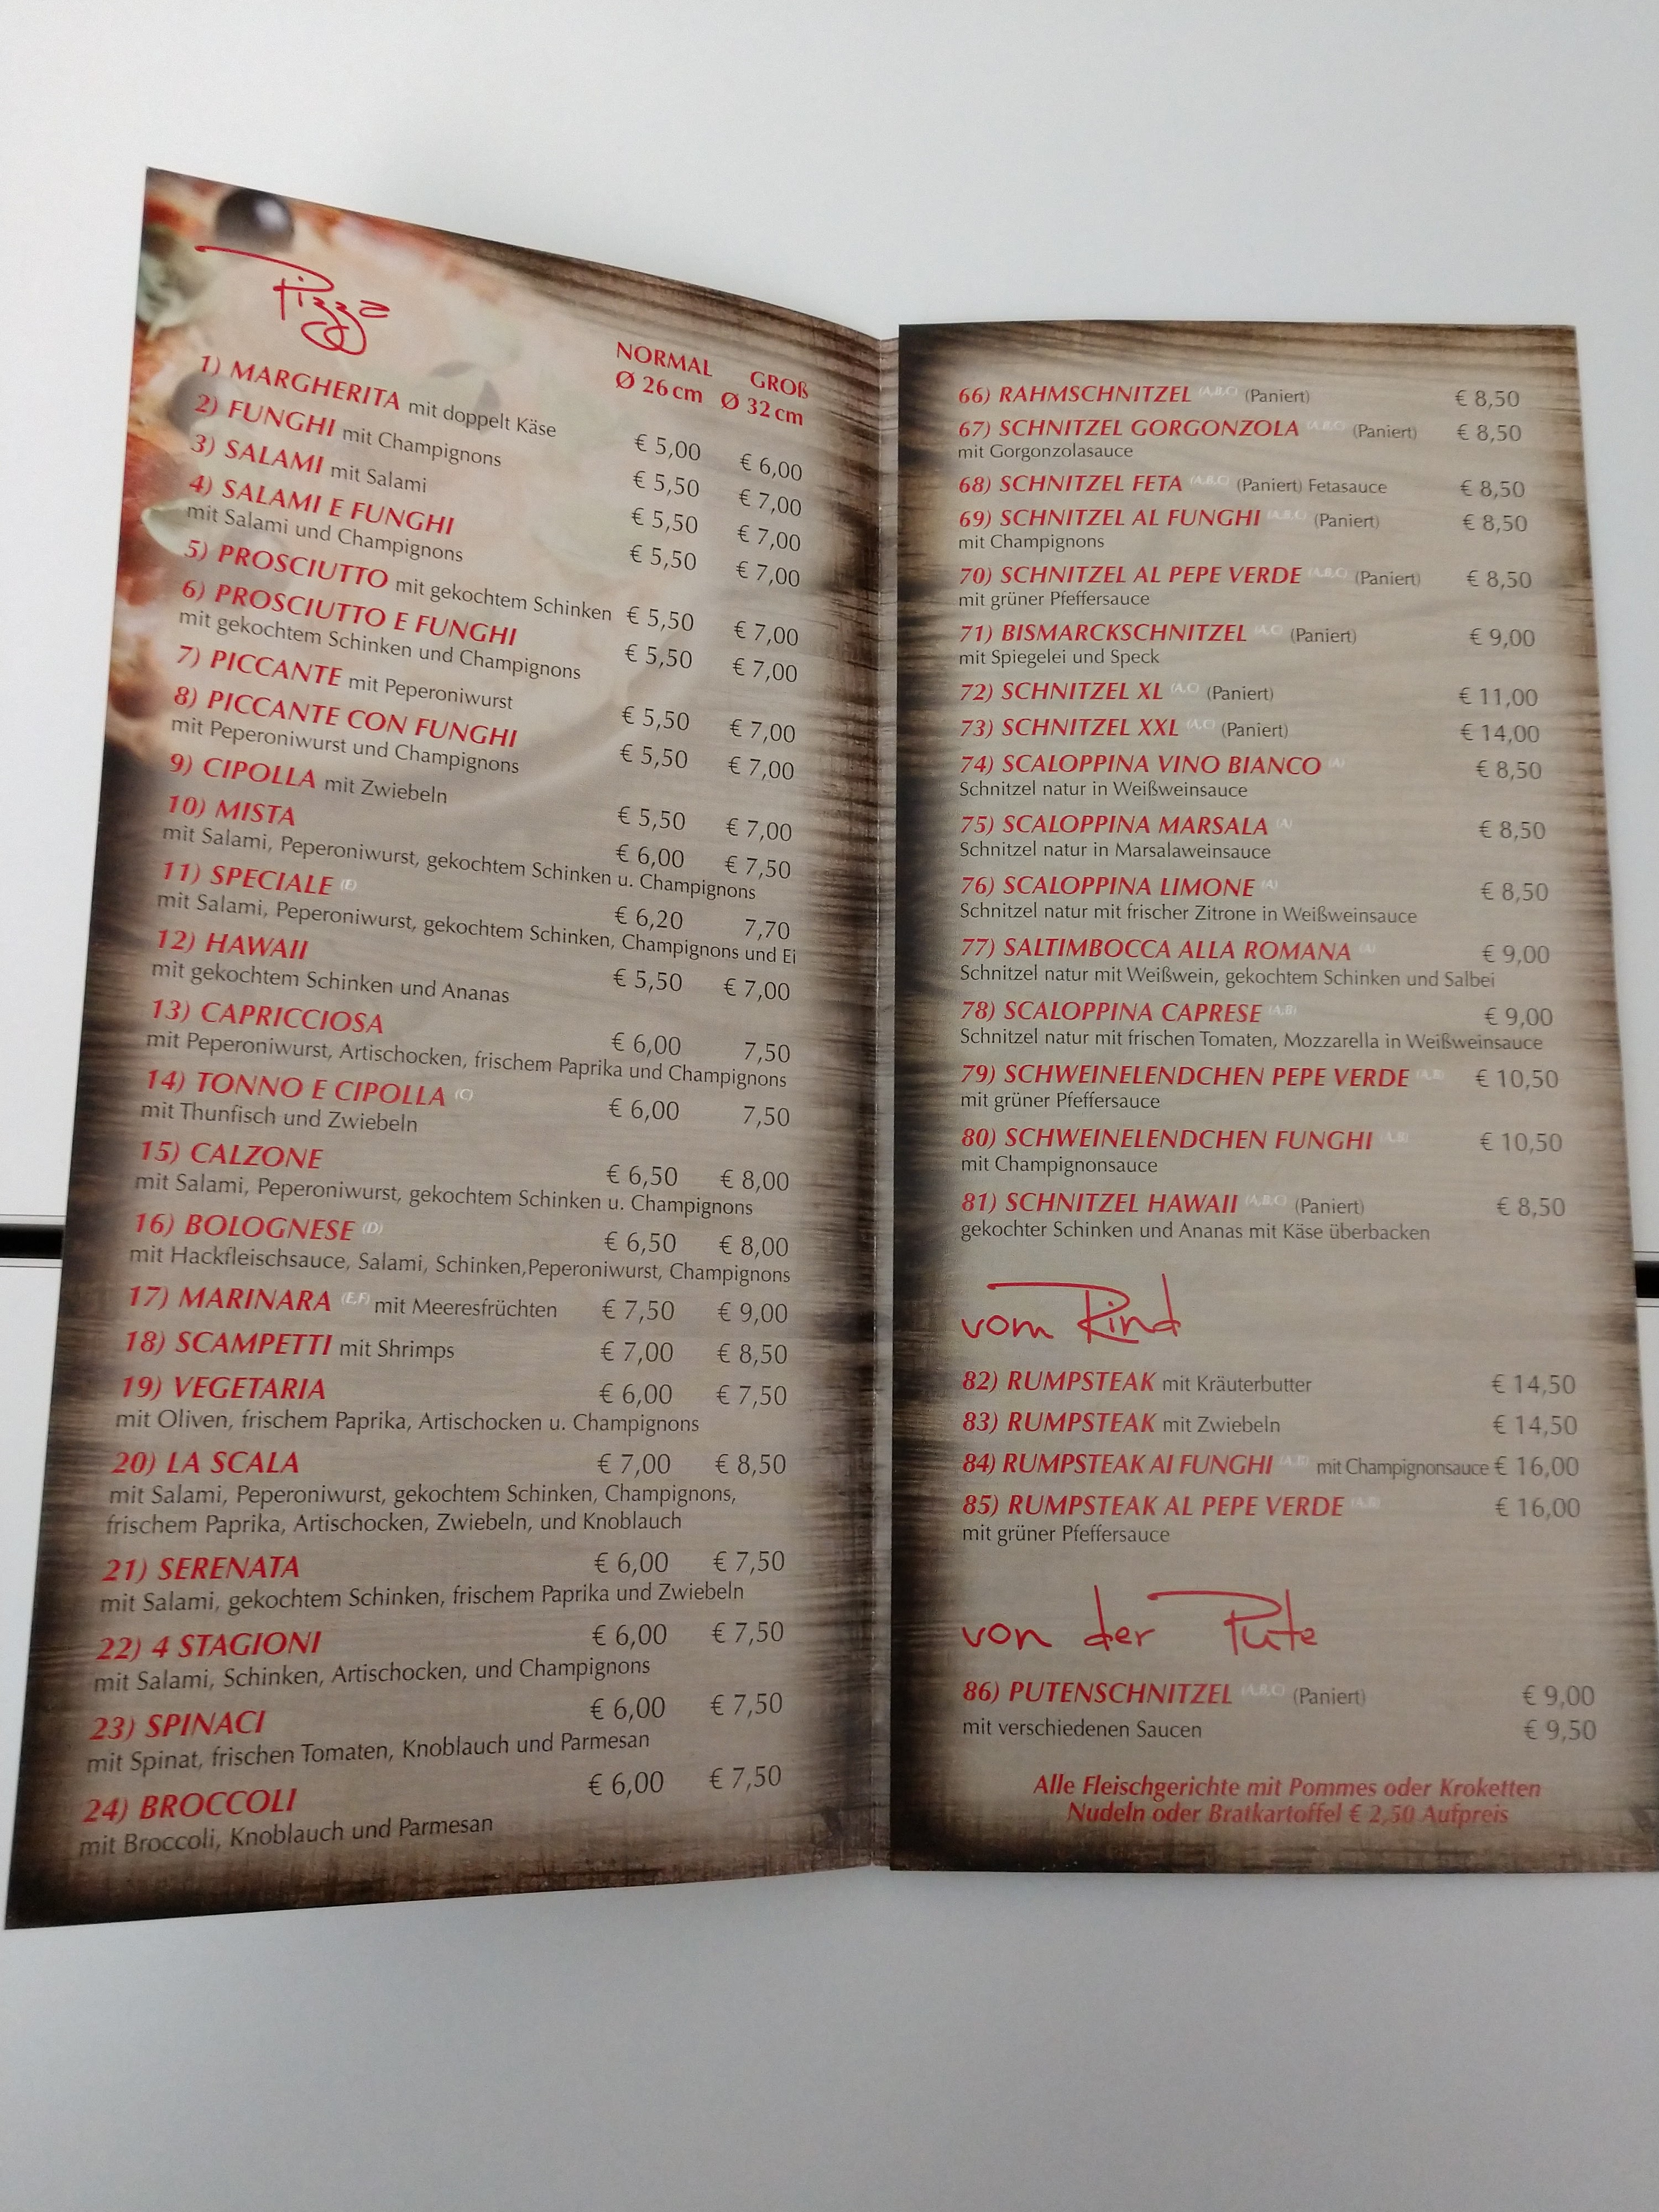 Pizza
NORMAL GROß
Ø 26 cm Ø 32 cm
1) MARGHERITA mit doppelt Käse € 5,00 € 6,00
2) FUNGHI mit Champignons € 5,50 € 7,00
3) SALAMI mit Salami € 5,50 € 7,00
4) SALAMI E FUNGHI € 5,50 € 7,00
mit Salami und Champignons
5) PROSCIUTTO mit gekochtem Schinken € 5,50 € 7,00
6) PROSCIUTTO E FUNGHI € 5,50 € 7,00
mit gekochtem Schinken und Champignons
7) PICCANTE mit Peperoniwurst € 5,50 € 7,00
8) PICCANTE CON FUNGHI € 5,50 € 7,00
mit Peperoniwurst und Champignons
9) CIPOLLA mit Zwiebeln € 5,50 € 7,00
10) MISTA € 6,00 € 7,50
mit Salami, Peperoniwurst, gekochtem Schinken u. Champignons
11) SPECIALE (E) € 6,20 7,70
mit Salami, Peperoniwurst, gekochtem Schinken, Champignons und Ei
12) HAWAII € 5,50 € 7,00
mit gekochtem Schinken und Ananas
13) CAPRICCIOSA € 6,00 7,50
mit Peperoniwurst, Artischocken, frischem Paprika und Champignons
14) TONNO E CIPOLLA (C) € 6,00 7,50
mit Thunfisch und Zwiebeln
15) CALZONE € 6,50 € 8,00
mit Salami, Peperoniwurst, gekochtem Schinken u. Champignons
16) BOLOGNESE (D) € 6,50 € 8,00
mit Hackfleischsauce, Salami, Schinken,Peperoniwurst, Champignons
17) MARINARA (E,F) mit Meeresfrüchten € 7,50 € 9,00
18) SCAMPETTI mit Shrimps € 7,00 € 8,50
19) VEGETARIA € 6,00 € 7,50
mit Oliven, frischem Paprika, Artischocken u. Champignons
20) LA SCALA € 7,00 € 8,50
mit Salami, Peperoniwurst, gekochtem Schinken, Champignons,
frischem Paprika, Artischocken, Zwiebeln, und Knoblauch
21) SERENATA € 6,00 € 7,50
mit Salami, gekochtem Schinken, frischem Paprika und Zwiebeln
22) 4 STAGIONI € 6,00 € 7,50
mit Salami, Schinken, Artischocken, und Champignons
23) SPINACI € 6,00 € 7,50
mit Spinat, frischen Tomaten, Knoblauch und Parmesan
24) BROCCOLI € 6,00 € 7,50
mit Broccoli, Knoblauch und Parmesan
66) RAHMSCHNITZEL (A,B,C) (Paniert) € 8,50
67) SCHNITZEL GORGONZOLA (A,B,C) (Paniert) € 8,50
mit Gorgonzolasauce
68) SCHNITZEL FETA (A,B,C) (Paniert) Fetasauce € 8,50
69) SCHNITZEL AL FUNGHI (A,B,C) (Paniert) € 8,50
mit Champignons
70) SCHNITZEL AL PEPE VERDE (A,B,C) (Paniert) € 8,50
mit grüner Pfeffersauce
71) BISMARCKSCHNITZEL (A,C) (Paniert) € 9,00
mit Spiegelei und Speck
72) SCHNITZEL XL (A,C) (Paniert) € 11,00
73) SCHNITZEL XXL (A,C) (Paniert) € 14,00
74) SCALOPPINA VINO BIANCO (A) € 8,50
Schnitzel natur in Weißweinsauce
75) SCALOPPINA MARSALA (A) € 8,50
Schnitzel natur in Marsalaweinsauce
76) SCALOPPINA LIMONE (A) € 8,50
Schnitzel natur mit frischer Zitrone in Weißweinsauce
77) SALTIMBOCCA ALLA ROMANA (A) € 9,00
Schnitzel natur mit Weißwein, gekochtem Schinken und Salbei
78) SCALOPPINA CAPRESE (A,B) € 9,00
Schnitzel natur mit frischen Tomaten, Mozzarella in Weißweinsauce
79) SCHWEINELENDCHEN PEPE VERDE (A,B) € 10,50
mit grüner Pfeffersauce
80) SCHWEINELENDCHEN FUNGHI (A,B) € 10,50
mit Champignonsauce
81) SCHNITZEL HAWAII (A,B,C) (Paniert) € 8,50
gekochter Schinken und Ananas mit Käse überbacken
vom Rind
82) RUMPSTEAK mit Kräuterbutter € 14,50
83) RUMPSTEAK mit Zwiebeln € 14,50
84) RUMPSTEAK AI FUNGHI (A,B) mit Champignonsauce € 16,00
85) RUMPSTEAK AL PEPE VERDE (A,B) € 16,00
mit grüner Pfeffersauce
von der Pute
86) PUTENSCHNITZEL (A,B,C) (Paniert) € 9,00
mit verschiedenen Saucen € 9,50
Alle Fleischgerichte mit Pommes oder Kroketten
Nudeln oder Bratkartoffel € 2,50 Aufpreis